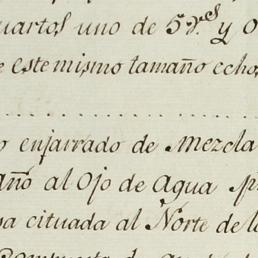 uartos uno de 5 v.es y o
e este mismo tamaño echos
o enjarrado de Mezcla
año al Ojo de Agua
sa cituada al Norte de l